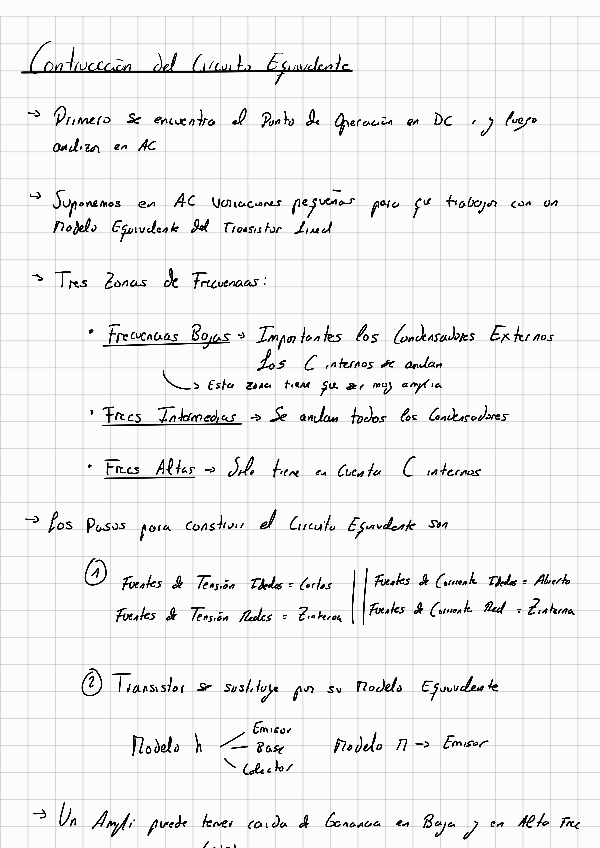 Contrucción del Circuito Equivalente
→ Primero se encuentra el Punto de Operación en DC, y luego
analizar en AC
→ Suponemos en AC variaciones pequeñas para que trabajar con un
Modelo Equivalente del Transistor Lineal
→ Tres Zonas de Frecuencias:
• Frecuencias Bajas → Importantes los Condensadores Externos
Los C internos se anulan
→ Esta zona tiene que ser muy amplia
• Frecs Intermedias → Se anulan todos los Condensadores
• Frecs Altas → Solo tiene en Cuenta C internos
→ Los Pasos para construir el Circuito Equivalente son
① Fuentes de Tensión Ideales = Cortos || Fuentes de Corriente Ideales = Abierto
Fuentes de Tensión Reales = Zinterna || Fuentes de Corriente Real = Zinterna
② Transistor se sustituye por su Modelo Equivalente
Emisor
Modelo h — Base Modelo π → Emisor
Colector
→ Un Ampli puede tener caida de Ganancia en Baja y en Alta Frec